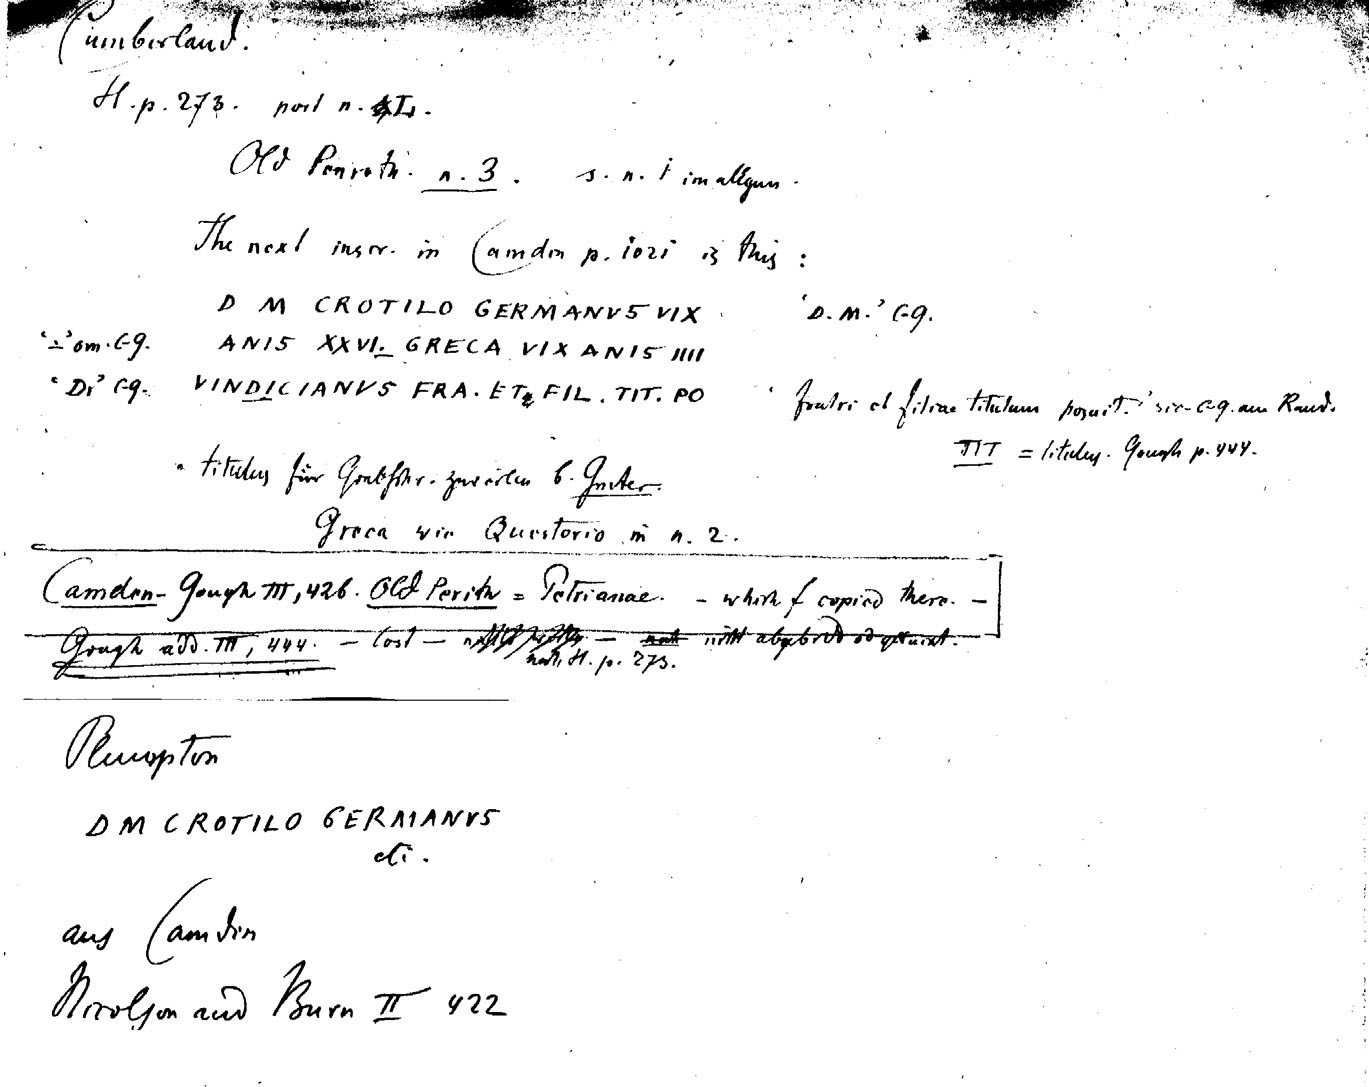 Cumberland.
H. p. 273. post n. L.
Old Penrith. n. 3. s. n. 1 im allgem.
The next inscr. in Camden p. 1021 is this:
D M CROTILO GERMANVS VIX 'D. M.' C-G.
'-' om. C-G. ANIS XXVI. GRECA VIX ANIS IIII
'DI' C-G. VINDICIANVS FRA. ET FIL. TIT. PO 'fratri et filiae titulum posuit.' sic C-G. am Rand.
TIT = titulus. Gough p. 444.
titulus für Grabschr. zuweilen b. Gruter.
Greca wie Questorio in n. 2.
Camden-Gough III, 426. Old Perith = Petrianae. - which I copied there. -
Gough add. III, 444. - lost - nicht abgebildet
nach H. p. 273.
Plumpton
DM CROTILO GERMANVS
etc.
aus Camden
Nicolson and Burn II 422